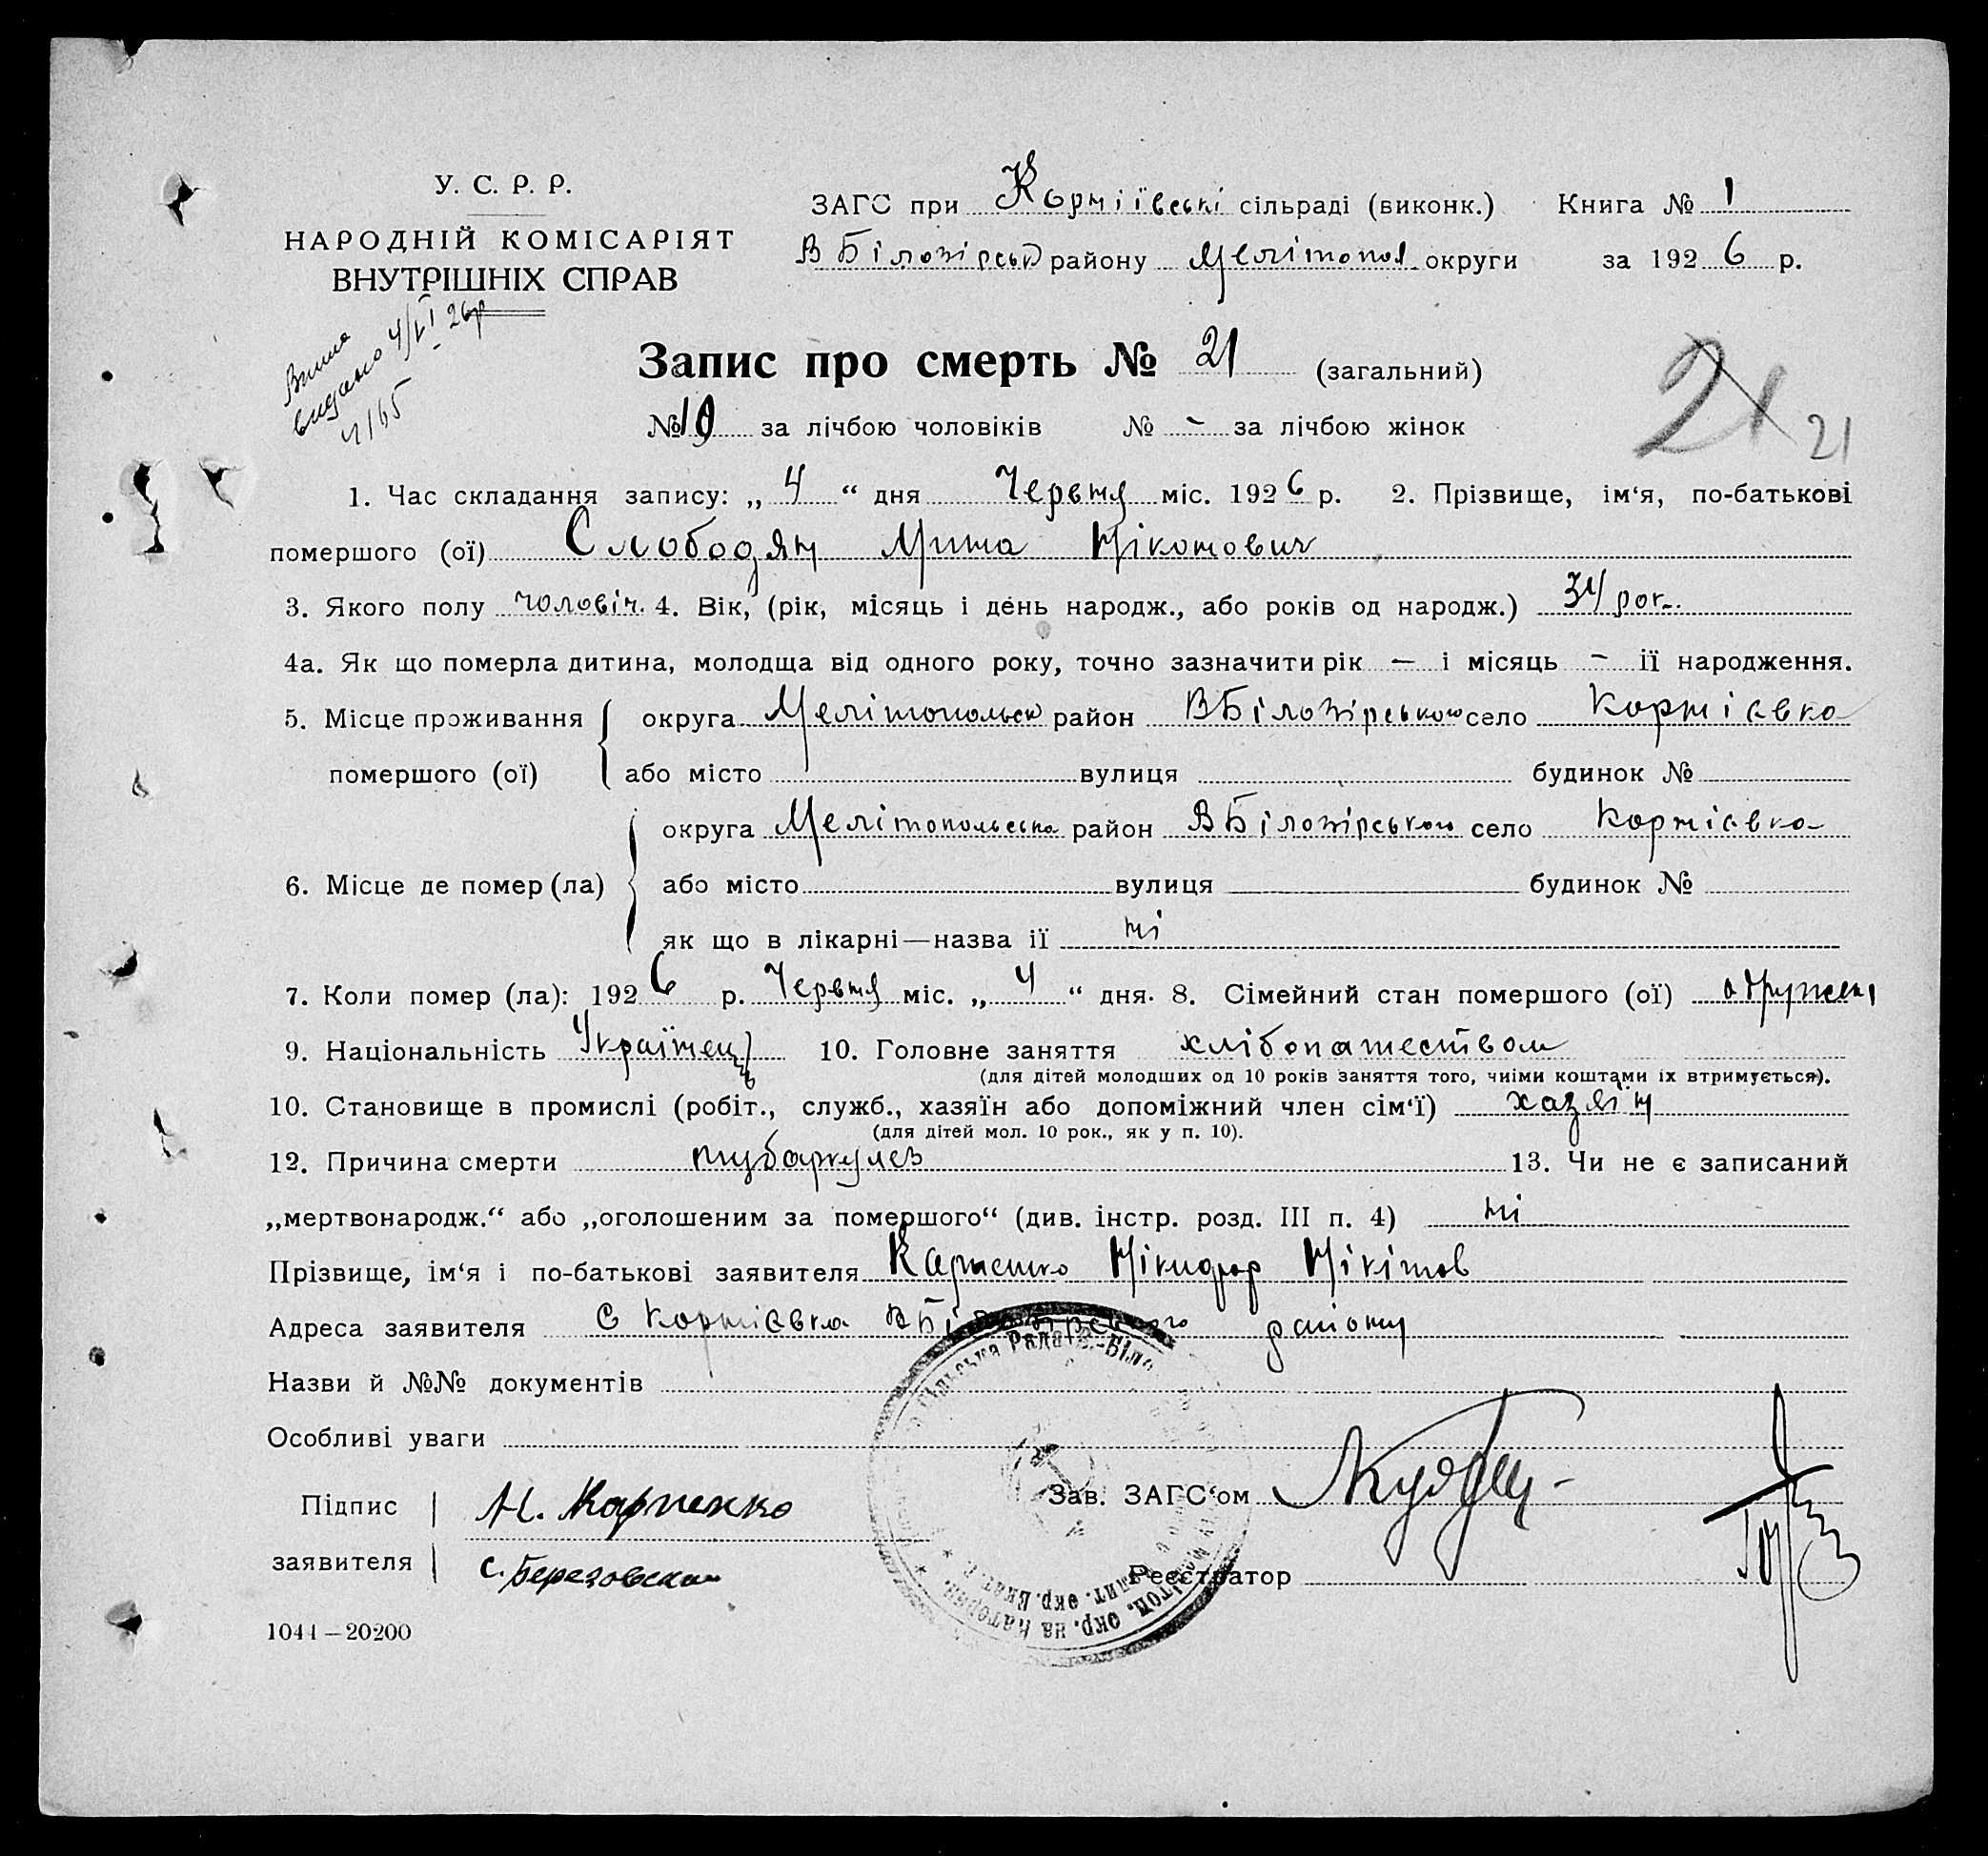 У. С. Р. Р.
НАРОДНІЙ КОМІСАРІЯТ
ВНУТРІШНІХ СПРАВ
видано 4/VI 26р
4165
ЗАГС при Корніївські сільраді (виконк.) Книга № 1
В Білозірськ району Мелітопол округи за 1926 р.
Запис про смерть № 21 (загальний)
21 21
№ 19 за лічбою чоловіків № - за лічбою жінок
1. Час складання запису: „ 4 “ дня Червня міс. 1926 р. 2. Прізвище, ім‘я, по-батькові
помершого (ої) Слободян Мина Ніконович
3. Якого полу чоловіч. 4. Вік, (рік, місяць і день народж., або років од народж.) 34 рок.
4а. Як що померла дитина, молодща від одного року, точно зазначити рік — і місяць - ії народження.
5. Місце проживання округа Мелітопольськ район ВБілозірського село Корніевка
помершого (ої) або місто вулиця будинок №
округа Мелітопольська район ВБілозірського село Корніевка
6. Місце де помер (ла) або місто вулиця будинок №
як що в лікарні—назва ії ні
7. Коли помер (ла): 1926 р. Червня міс. „ 4 “ дня. 8. Сімейний стан помершого (ої) одружені
9. Національність Українець 10. Головне заняття хлібопашеством
(для дітей молодших од 10 років заняття того, чиїми коштами їх втримується).
10. Становище в промислі (робіт., служб., хазяїн або допоміжний член сім‘ї) хазяїн
(для дітей мол. 10 рок., як у п. 10).
12. Причина смерти тубаркулез 13. Чи не є записаний
„мертвонародж.“ або „оголошеним за помершого“ (див. інстр. розд. III п. 4) ні
Прізвище, ім‘я і по-батькові заявителя Нікифор Нікітов
Адреса заявителя с Корніевка ВБілозірского району
Назви й №№ документів
Особливі уваги
Підпис Н. Карпенко Зав. ЗАГС‘ом
заявителя С. Березовская Реєстратор
1044—20200